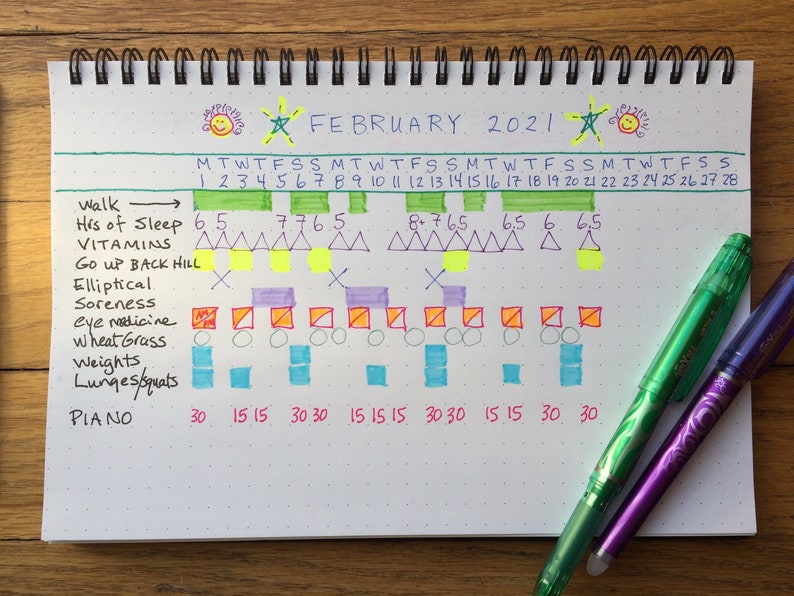 FEBRUARY 2021
M T W T F S S M T W T F S S M T W T F S S M T W T F S S
1 2 3 4 5 6 7 8 9 10 11 12 13 14 15 16 17 18 19 20 21 22 23 24 25 26 27 28
Walk
Hrs of Sleep 6 5 7 7 6 5 8+ 7 6.5 6.5 6 6.5
VITAMINS
GO UP BACK HILL
Elliptical
Soreness
eye medicine AM PM
WheatGrass
Weights
Lunges/squats
PIANO 30 15 15 30 30 15 15 15 30 30 15 15 30 30